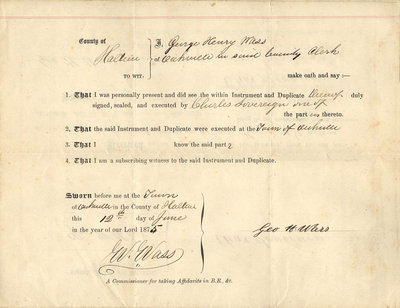 County of
Halton
TO WIT:
I, George Henry Wass
of Oakville in said County Clerk
make oath and say :—
1. That I was personally present and did see the within Instrument and Duplicate thereof duly
signed, sealed, and executed by Charles Sovereign one of
the part ies thereto.
2. That the said Instrument and Duplicate were executed at the Town of Oakville
3. That I know the said part y
4. That I am a subscribing witness to the said Instrument and Duplicate.
Sworn before me at the Town
of Oakville in the County of Halton
this 12th day of June
in the year of our Lord 1875
Wass
Geo H Wass
A Commissioner for taking Affidavits in B.R., &c.